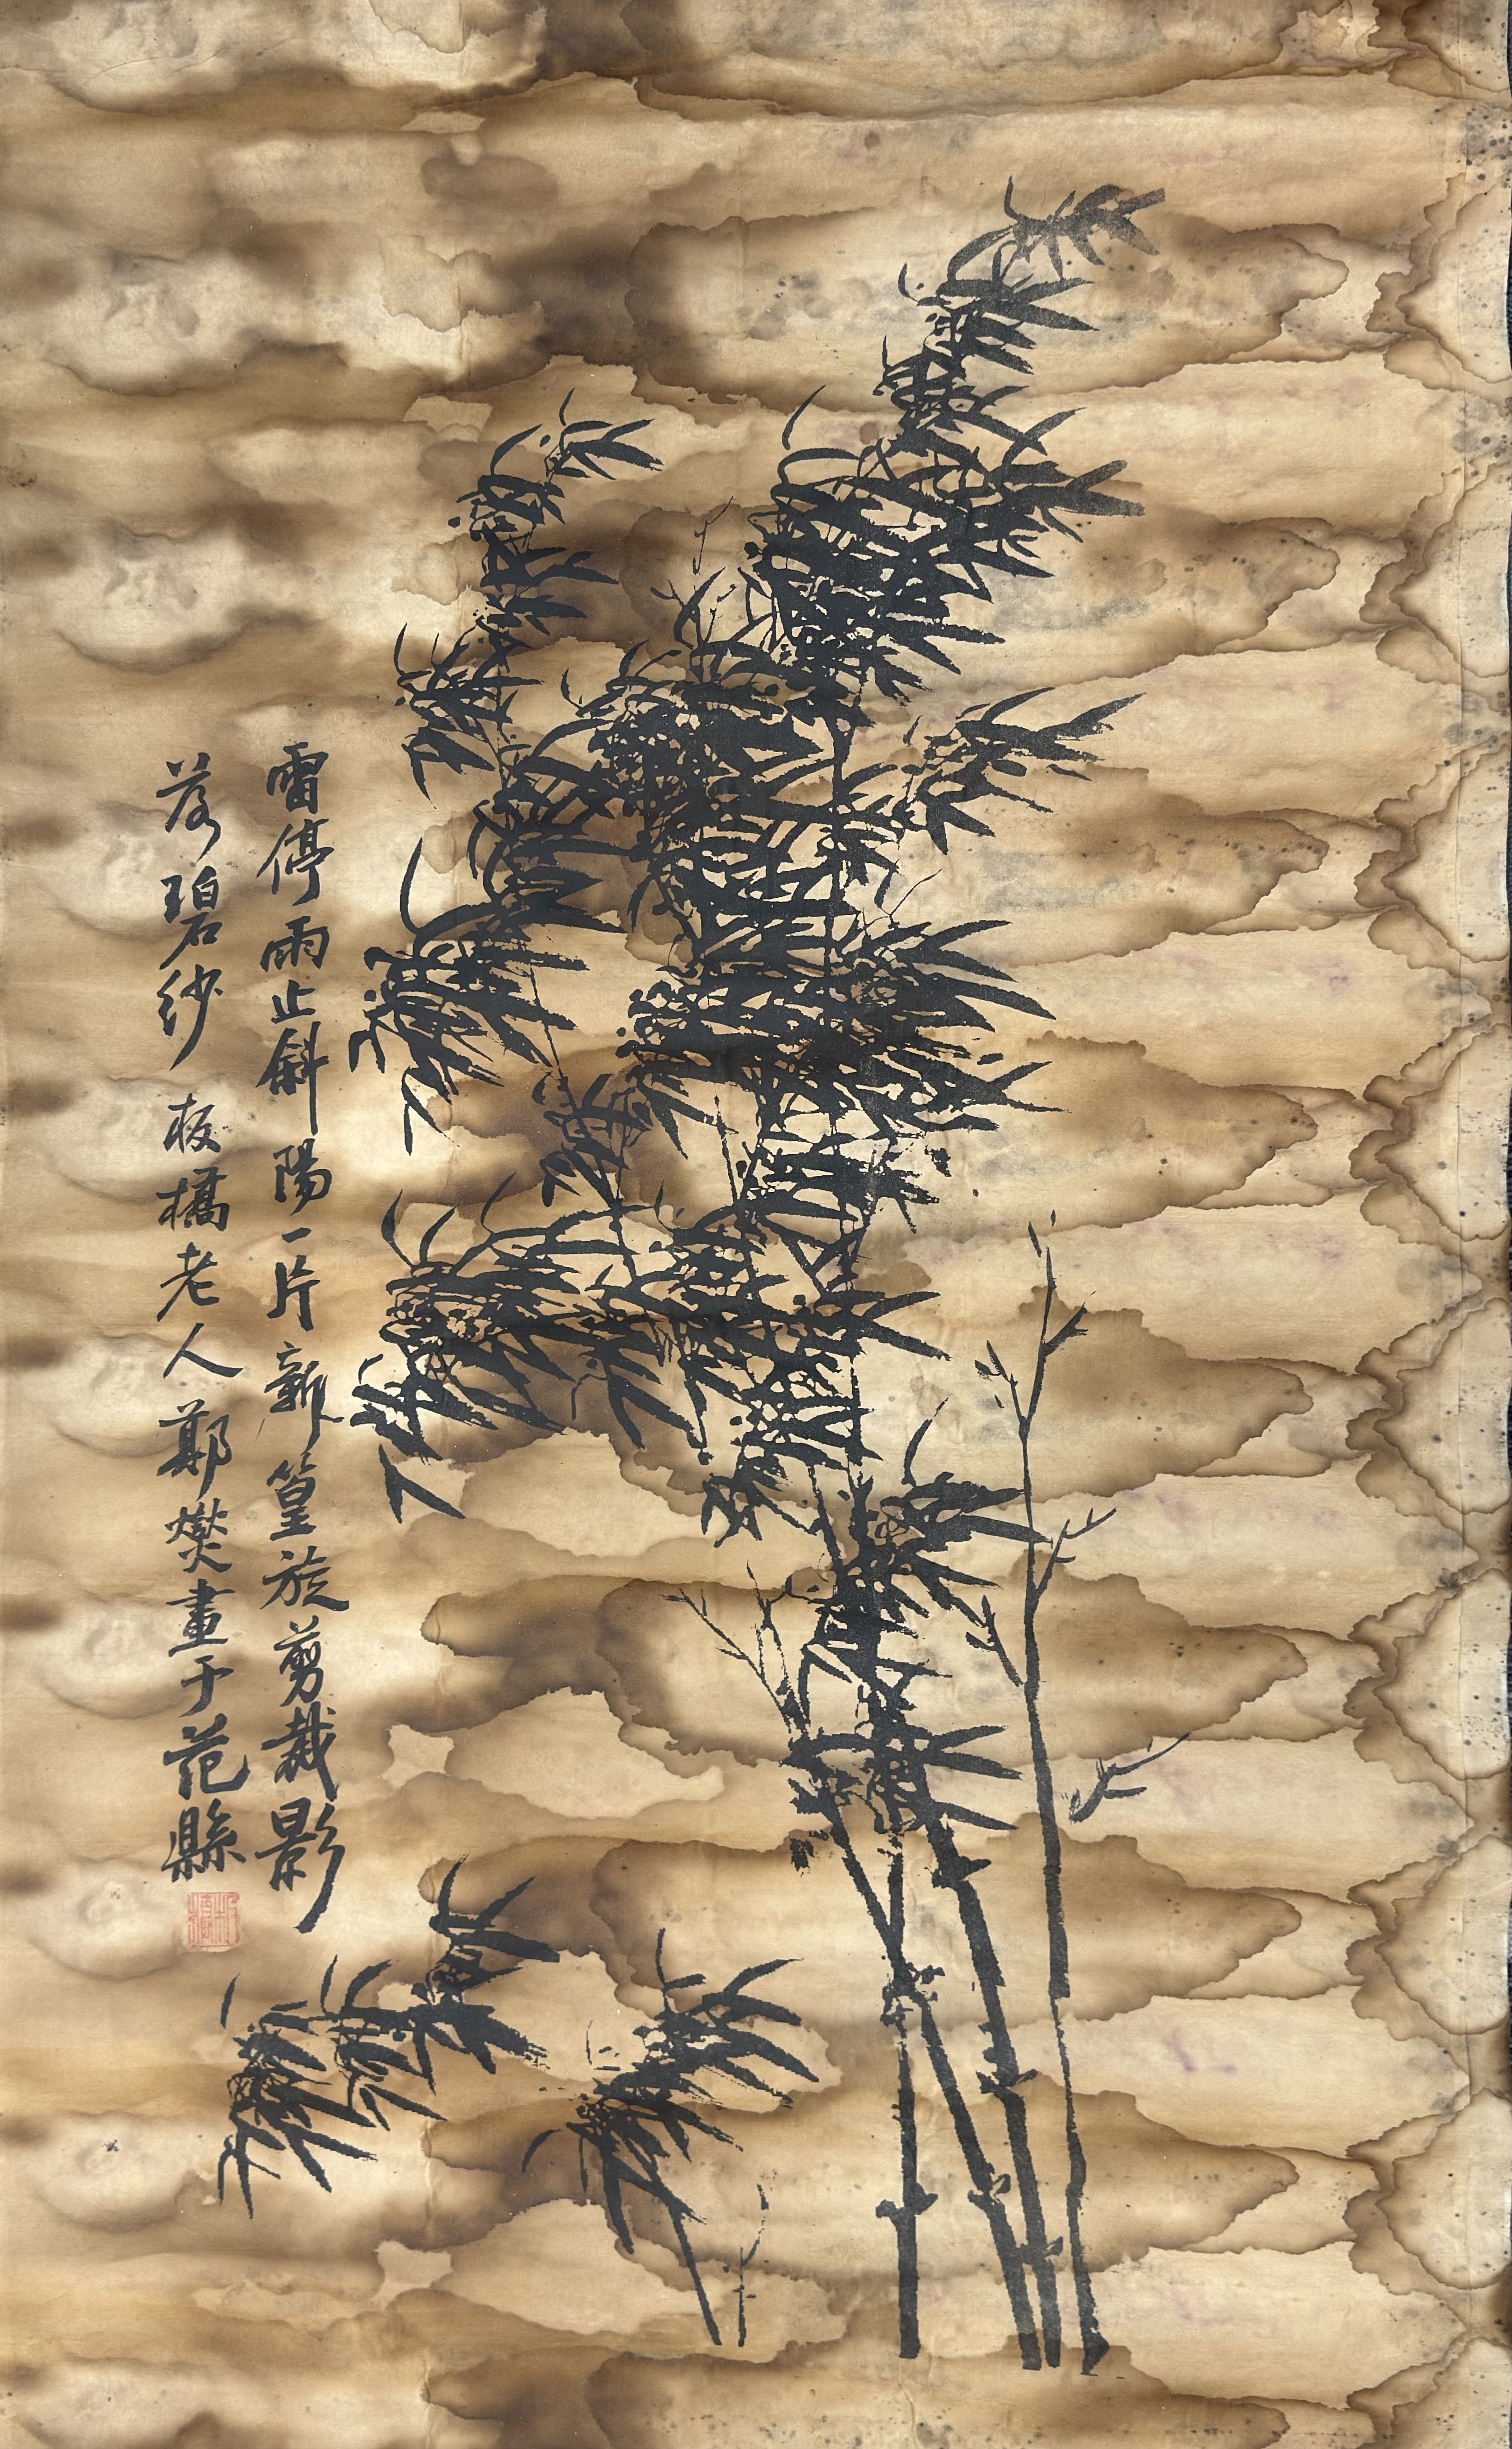 雷停雨止斜陽一片新篁旋剪裁影
落碧紗 板橋老人鄭燮畫于范縣